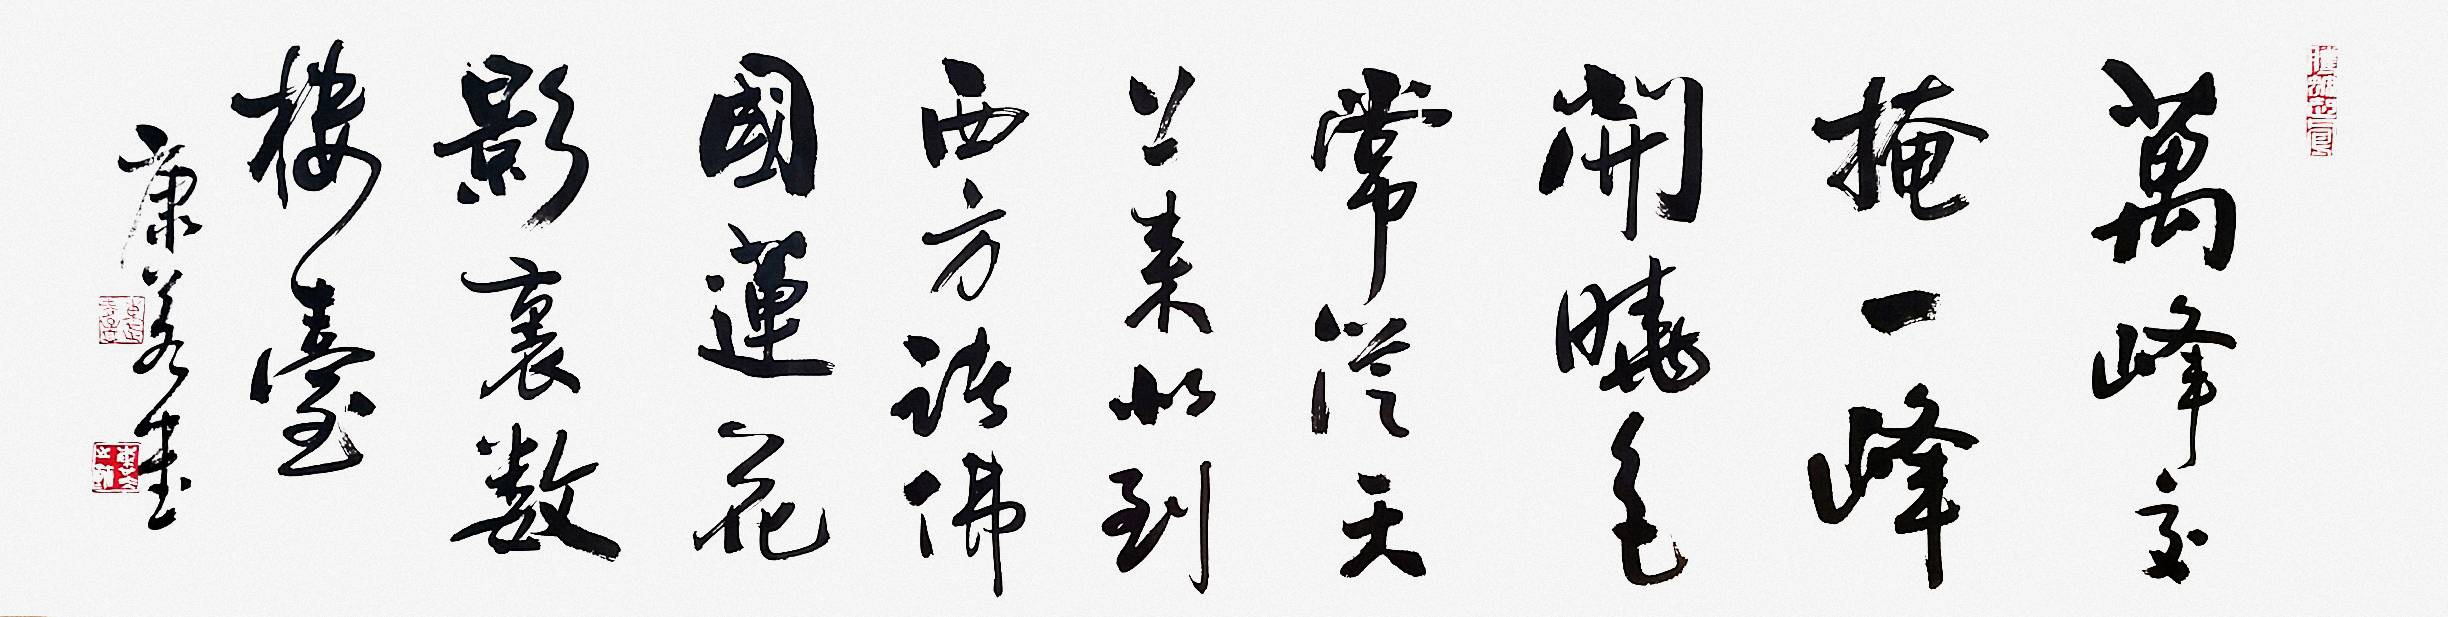 萬峰交
掩一峰
開曉色
常從天
上來似到
西方諸佛
國蓮花
影裏數
樓臺
康若書